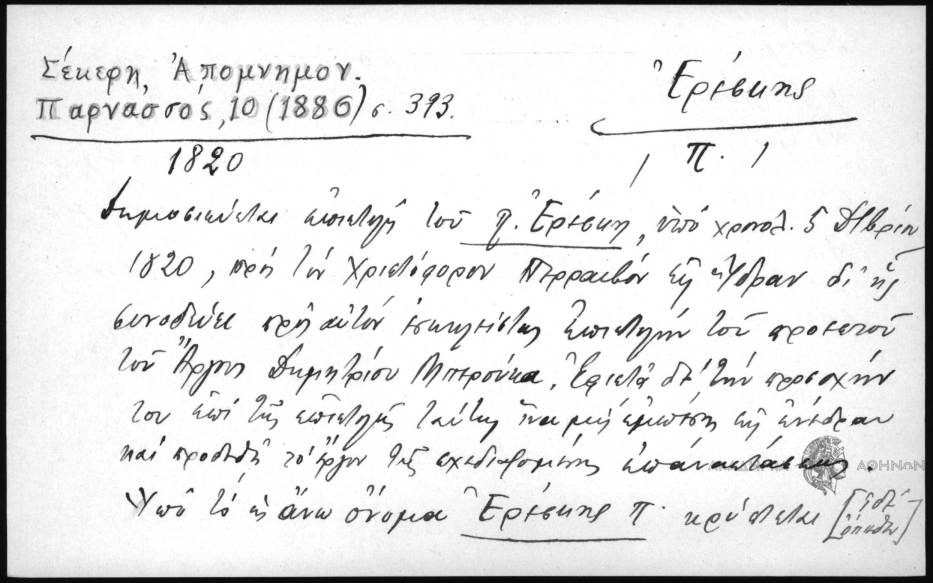 Σέκερη, Ἀπομνημον.
Παρνασσός, 10 (1886) σ. 393.
1820
Ἐρέσκης
π.
Δημοσιεύεται ἐπιστολὴ τοῦ π. Ἐρέσκη, ὑπὸ χρονολ. 5 Δ/βρίου
1820, πρὸς τὸν Χριστόφορον Περραιβὸν εἰς Ὕδραν δι' ἧς
συνοδεύει πρὸς αὐτὸν ἐπιστολὴν τοῦ προεστοῦ
τοῦ Ἄργους Δημητρίου Μπερούκα. Ἐφιστᾶ δὲ τὴν προσοχήν
του ἐπὶ τῆς ἐπιστολῆς ταύτης ἵνα μὴ ἐμπέσῃ εἰς ἐνέδραν
καὶ προδοθῇ τὸ ἔργον τῆς σχεδιαζομένης ἐπαναστάσεως.
Ὑπὸ τὸ ὡς ἄνω ὄνομα Ἐρέσκης π. κρύπτεται [ἰδὲ
ὄπισθεν]
ΑΘΗΝΩΝ